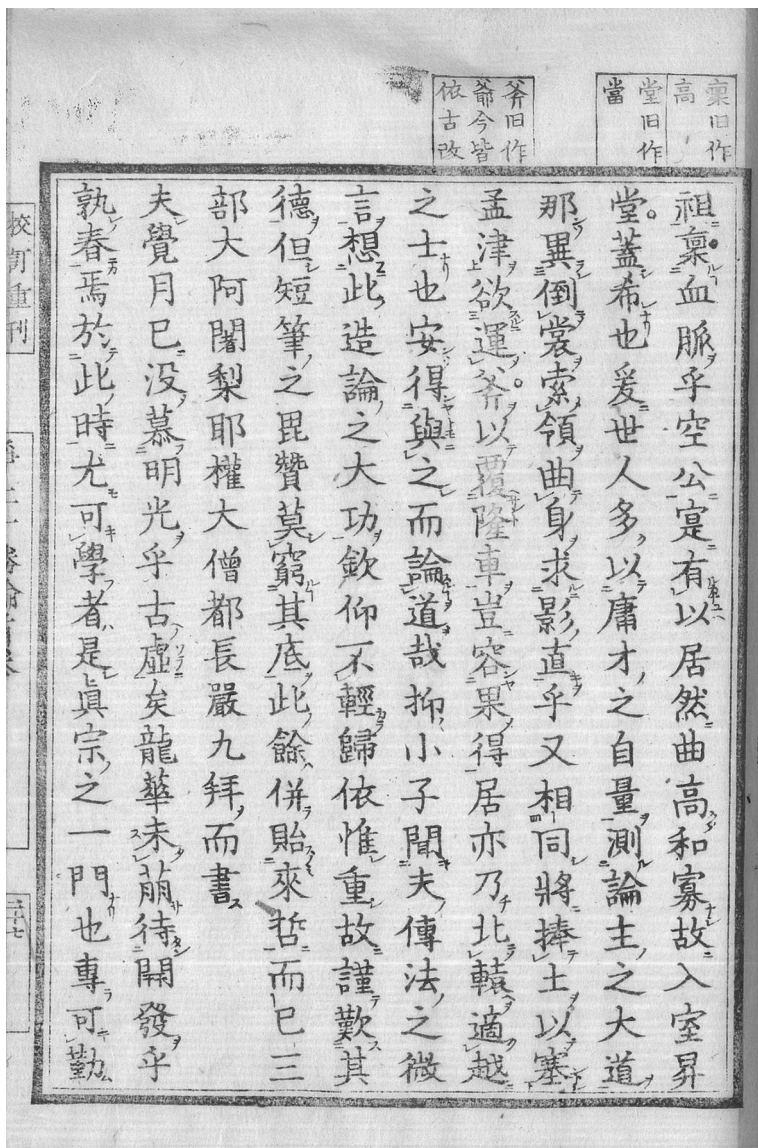 稟旧作
高
堂旧作
當
斧旧作
爺今皆
依古改
祖稟血脈乎空公寔有以居然曲高和寡故入室昇
堂蓋希也爰世人多以庸才之自量測論主之大道
那異倒裳索領曲身求影直乎又相同將捧土以塞
孟津欲運斧以覆隆車豈容果得居亦乃北轅適越
之士也安得與之而論道哉抑小子聞夫傳法之微
言想此造論之大功欽仰不輕歸依惟重故謹歎其
德但短筆之毘贊莫窮其底此餘併貽來哲而已三
部大阿闍梨耶權大僧都長嚴九拜而書
夫覺月已没慕明光乎古虛矣龍華未萠待開發乎
孰春焉於此時尤可學者是眞宗之一門也專可勤
校訂重刊
二十七